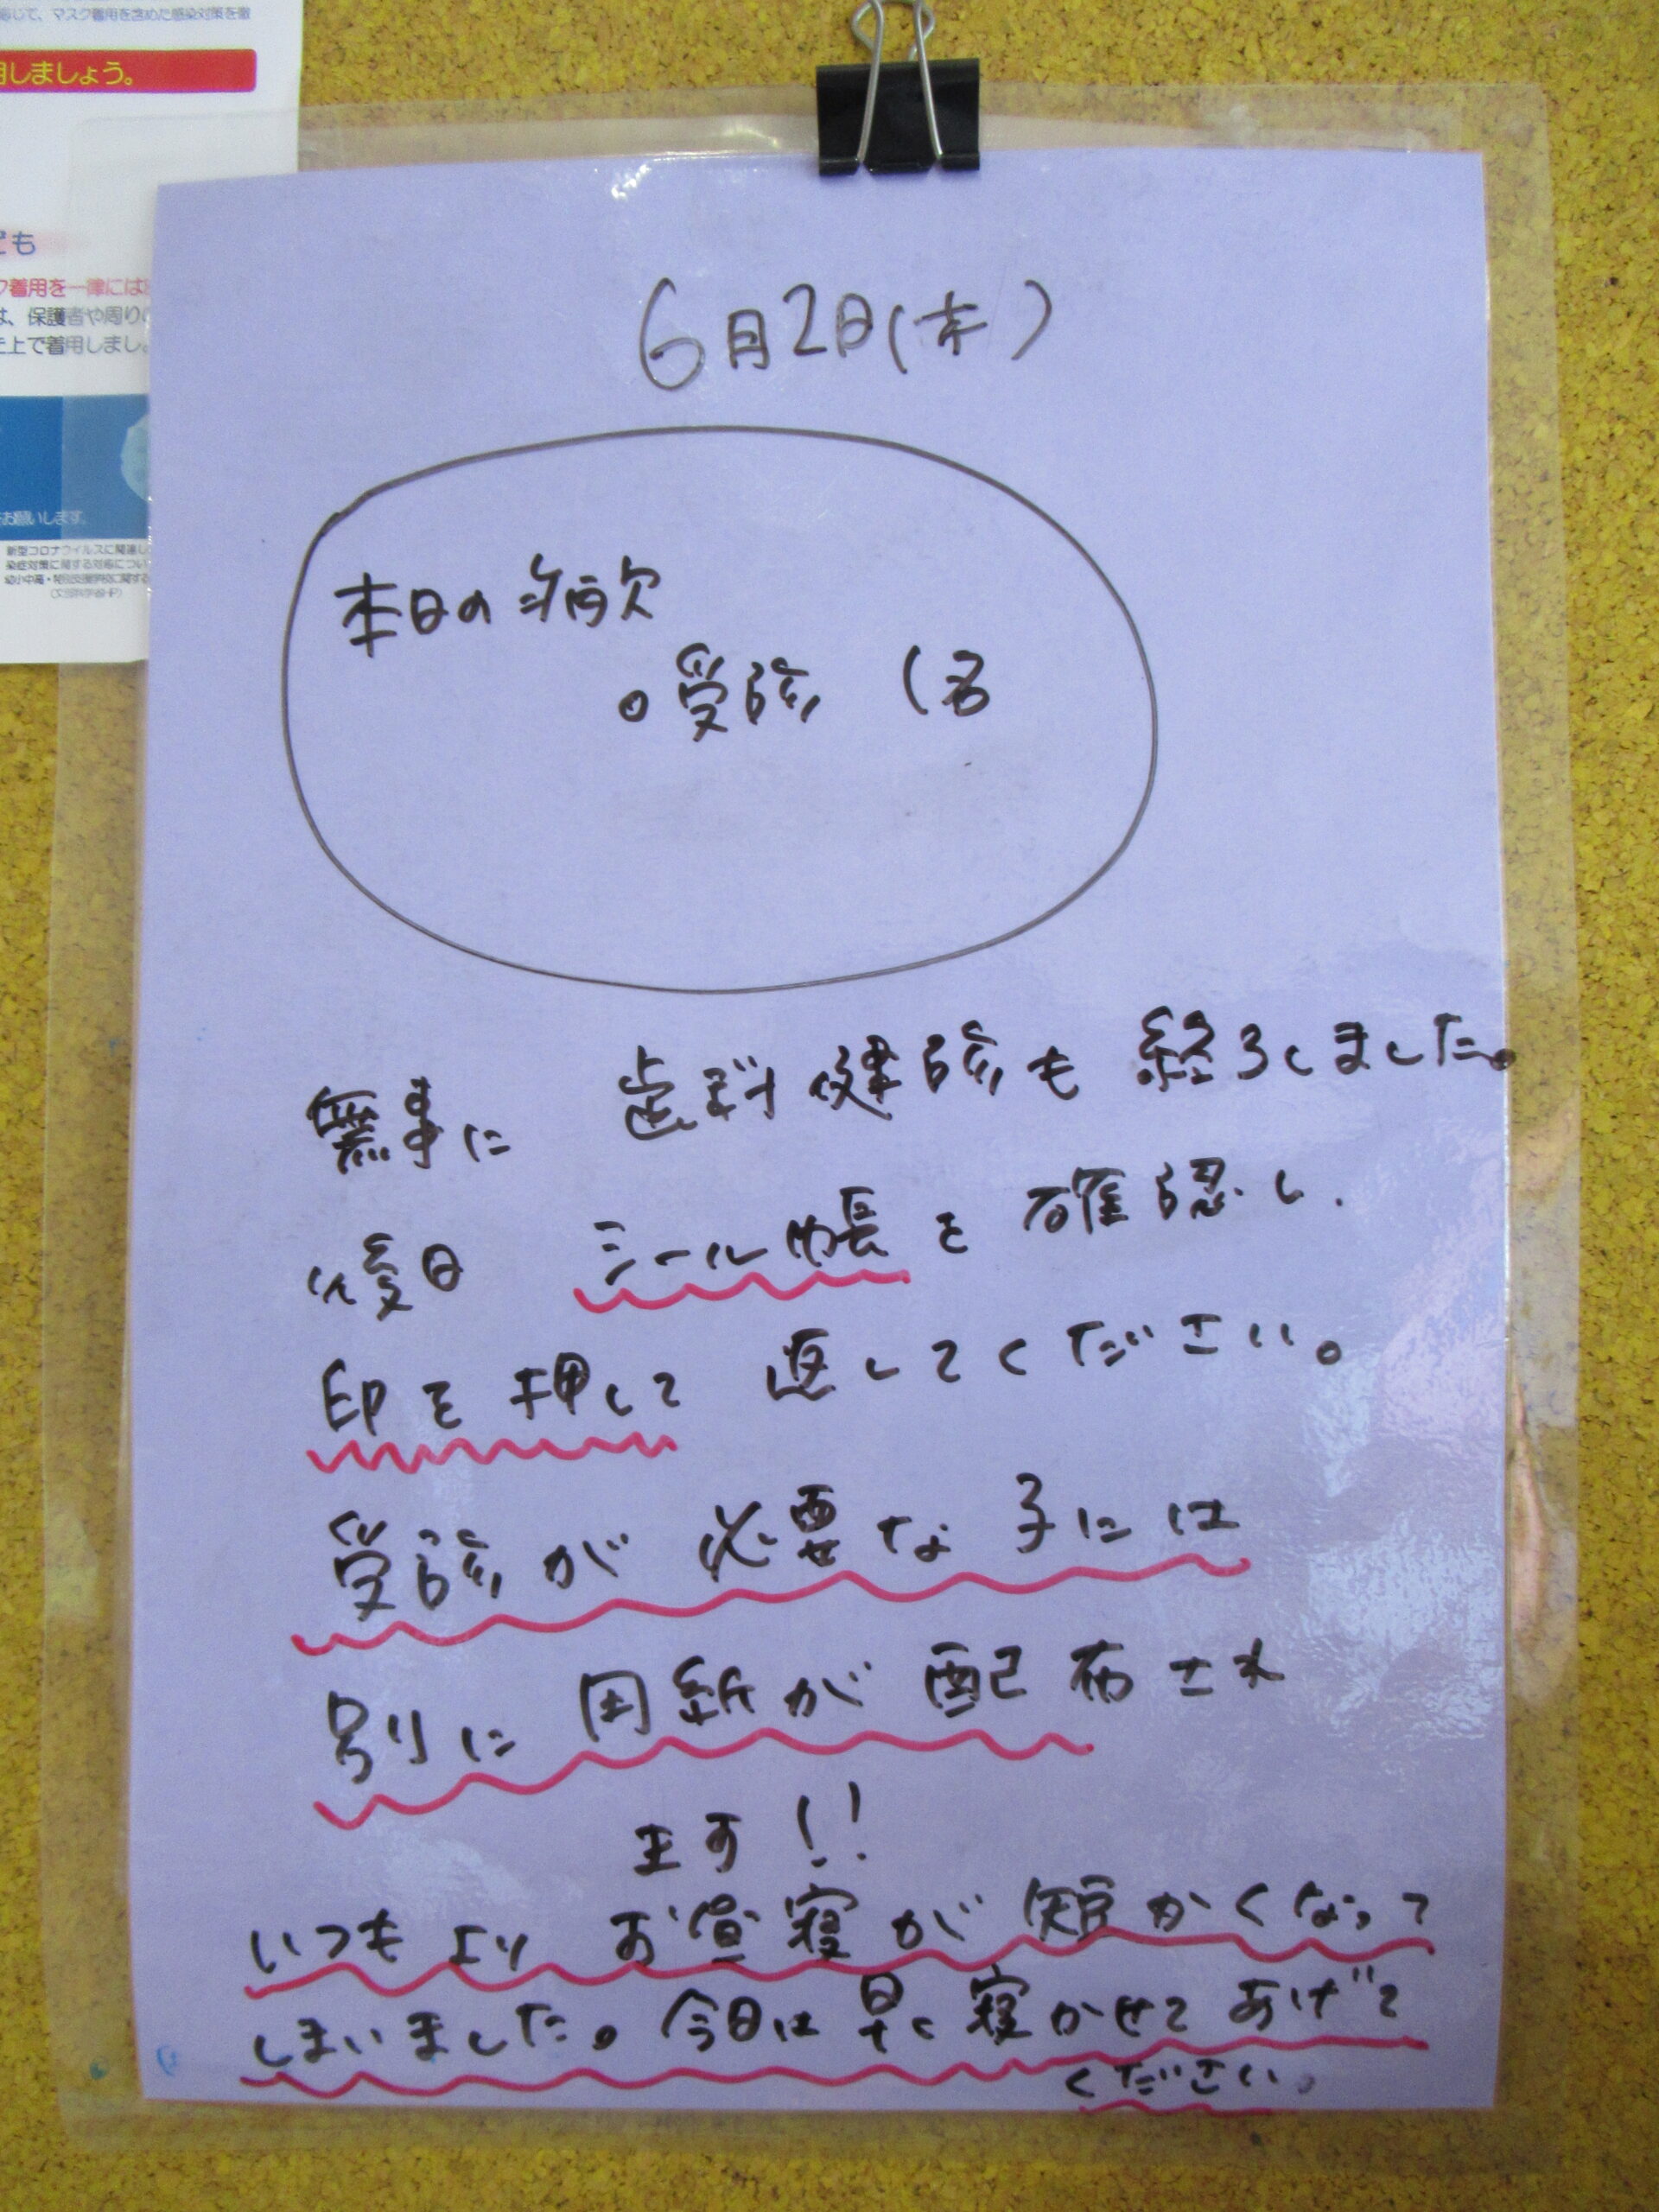 じて、マスク着用を含めた感染対策を徹
用しましょう。
ども
ク着用を一律には
は、保護者や周りの
上で着用しまし
お願いします。
新型コロナウイルスに関連し
染症対策に関する対応につい
幼小中高・特別支援学校に関する
(文部科学省HP)
6月2日(木)
本日の病欠
。受診 (名
無事に 歯科健診も終了しました。
後日 シール帳を確認し、
印を押して 返してください。
受診が必要な子には
別に用紙が配布され
ます!!
いつもより お昼寝が短かくなって
しまいました。今日は早く寝かせてあげて
ください。